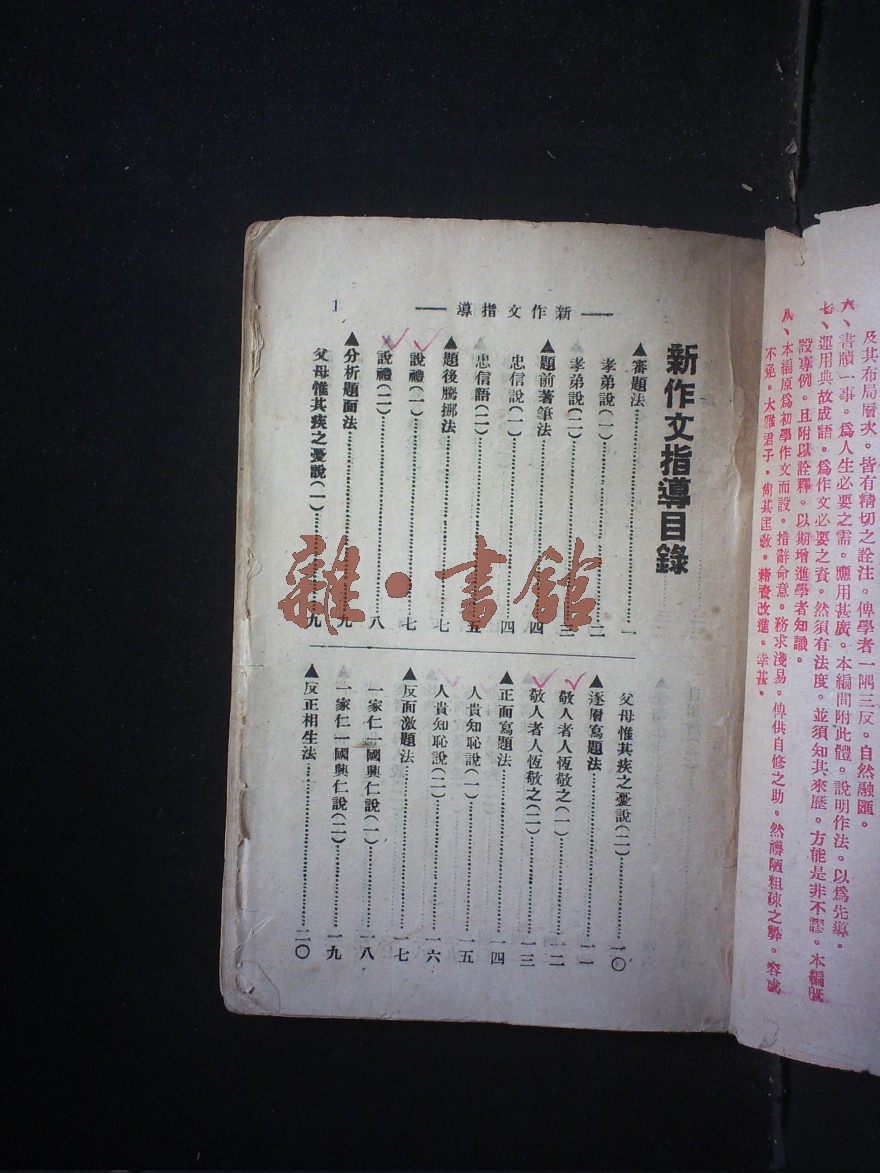 及其布局層次。皆有精切之詮注。俾學者一隅三反。自然融匯。
六、書牘一事。爲人生必要之需。應用甚廣。本編間附此體。說明作法。以爲先導。
七、運用典故成語。爲作文必要之資。然須有法度。並須知其來歷。方能是非不謬。本編旣
設專例。且附以詮釋。以期增進學者知識。
八、本編原爲初學作文而設。措辭命意。務求淺易。俾供自修之助。然譾陋粗疎之弊。容或
不免。大雅君子。尙其匡敎。藉資改進。幸甚。
新作文指導
1
新作文指導目錄
▲審題法 一
孝弟說(一) 二
孝弟說(二) 三
▲題前著筆法 四
忠信說(一) 四
忠信語(二) 五
▲題後騰挪法 七
說禮(一) 七
說禮(二) 八
▲分析題面法 九
父母惟其疾之憂說(一) 九
父母惟其疾之憂說(二) 一〇
▲逐層寫題法 一一
敬人者人恆敬之(一) 一二
敬人者人恆敬之(二) 一三
▲正面寫題法 一四
人貴知恥說(一) 一五
人貴知恥說(二) 一六
▲反面激題法 一七
一家仁一國興仁說(一) 一八
一家仁一國興仁說(二) 一九
▲反正相生法 二〇
雜·書館